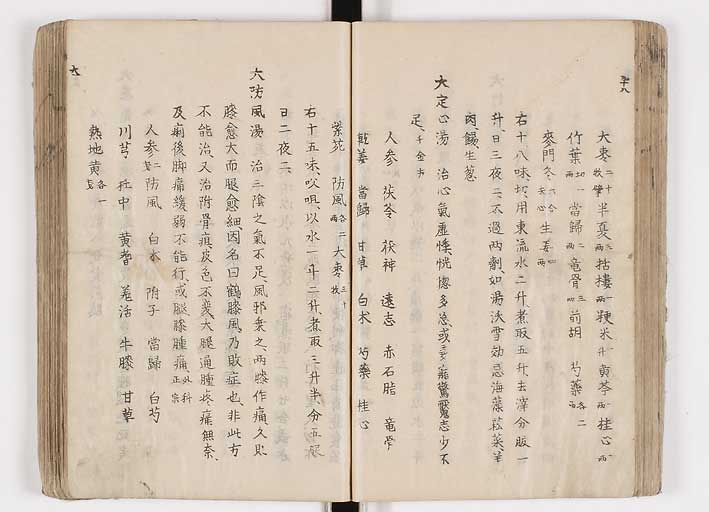 大棗二十枚擘半夏三両括樓一両粳米一升黄芩一両桂心一両
竹葉切一両當歸二両竜骨三両前胡 芍藥各二両
麥門冬六合去心生姜四両
右十八味切用東流水二斗煮取五升去滓分服一
升日三夜二不過兩劑如湯沃雪効忌海藻菘菜羊
肉餳生葱
大定心湯 治心氣虚悸恍惚多忘或夢寤驚魘志少不
足千金方
人参 茯苓 茯神 遠志 赤石脂 竜骨
乾姜 當歸 甘草 白木 芍藥 桂心
紫菀 防風各二両 大棗三十枚
右十五味㕮咀以水一斗二升煮取三升半分五服
日三夜二
大防風湯 治三陰之氣不足風邪乗之兩膝作痛久則
膝愈大而腿愈細因名曰鶴膝風乃敗症也非此方
不能治又治附骨疽皮色不変大腿通腫疼痛無奈
及痢後脚痛緩弱不能行或腿膝腫痛外科正宗
人参二戔防風 白木 附子 當歸 白芍
川芎 杜中 黄耆 羌活 牛膝 甘草
熟地黄各一戔